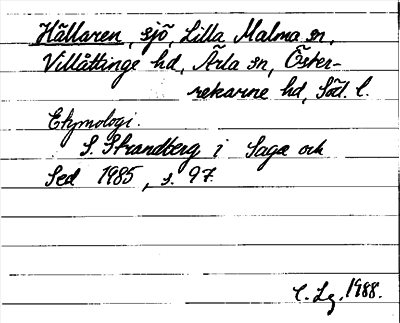 Hållaren, sjö, Lilla Malma sn,
Villåttinge hd, Ärla sn, Öster-
rekarne hd, Söd. l.
Etymologi.
S. Strandberg i Saga och
Sed 1985, s. 97.
C. Lg. 1988.